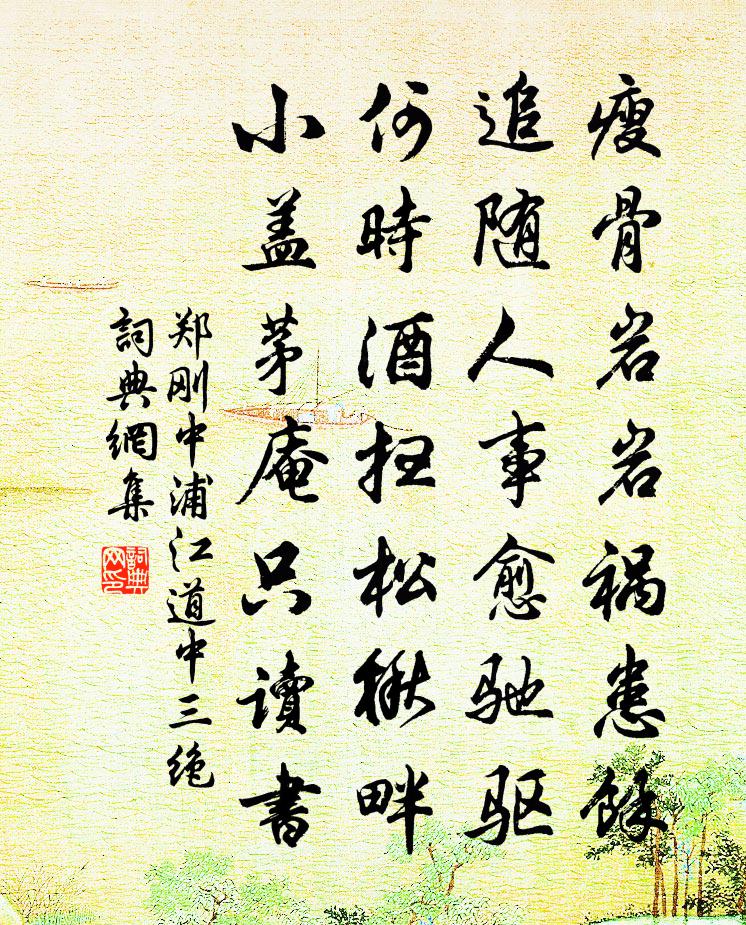 瘦骨岩岩祸患餘
追随人事愈驰驱
何時酒扫松楸畔
小盖茅庵只讀書
郑刚中浦江道中三绝
詞典網集
詞典网印